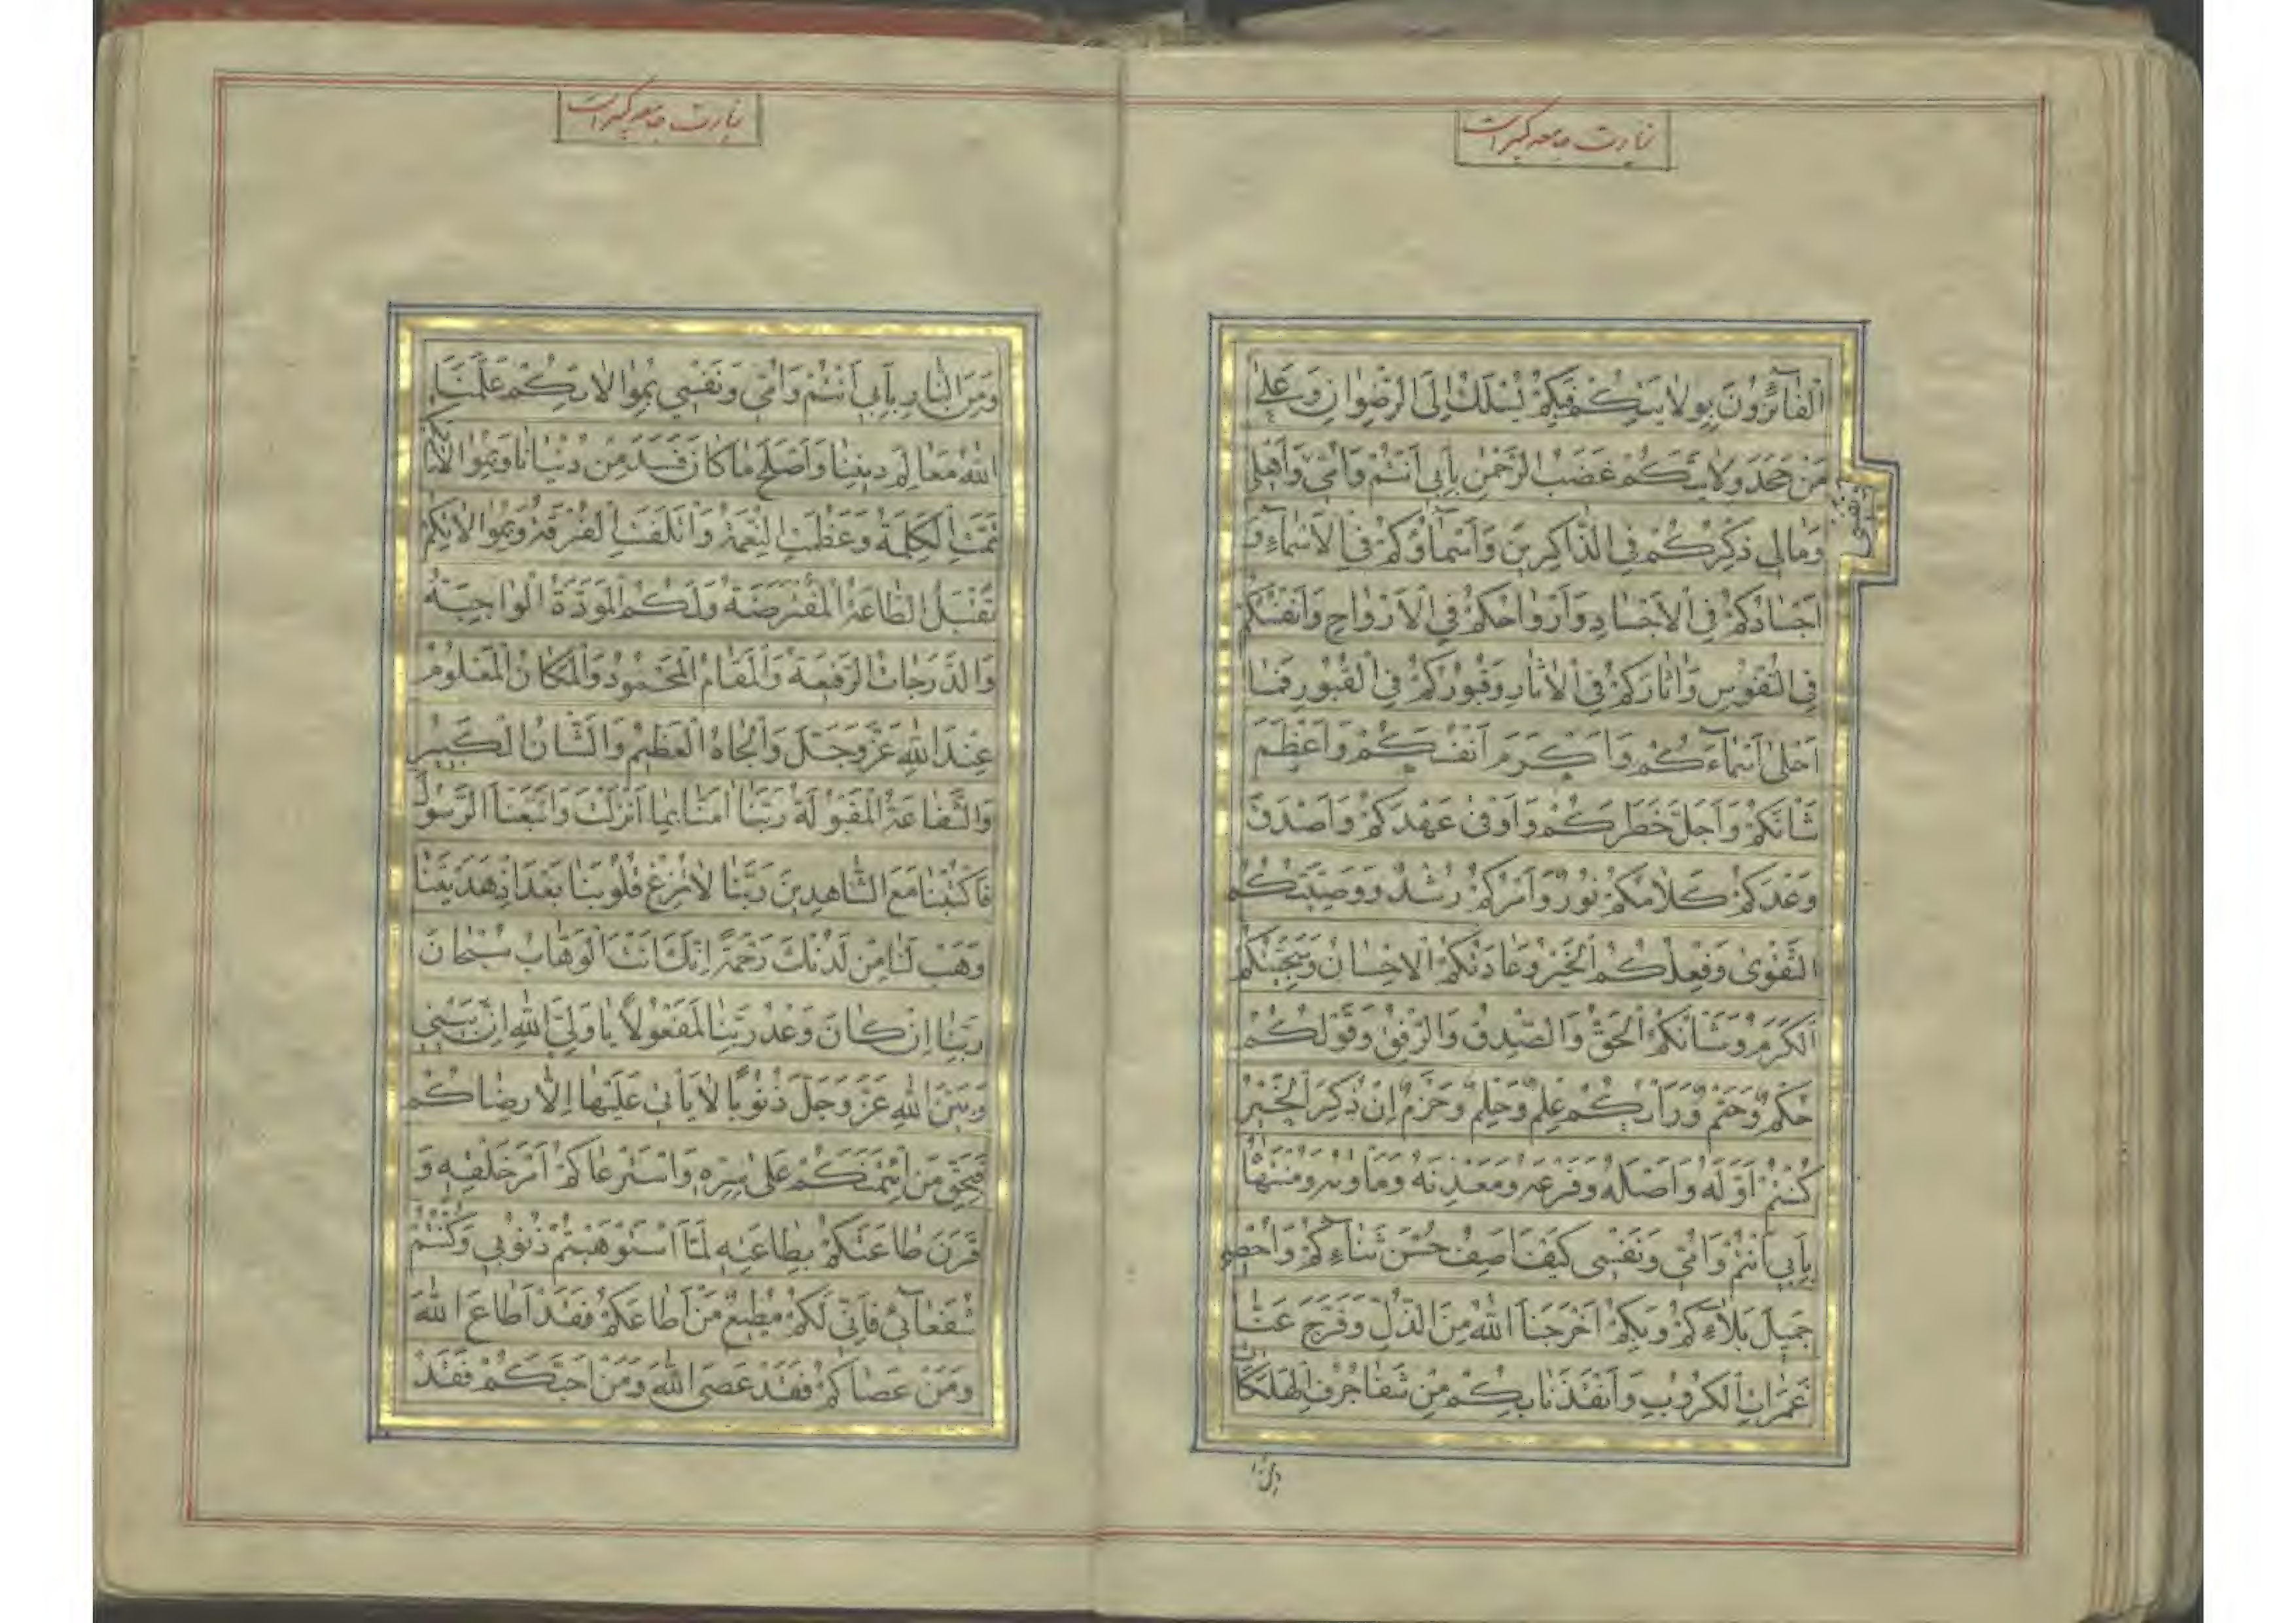 زیارت جامعه کبیر است
الْفٰآئِزُونَ بِوِلايَتِكُمْ بِكُمْ يُسْلَكُ اِلَى الرِّضْوانِ وَعَلىٰ
مَنْ جَحَدَ وِلايَتَكُمْ غَضَبُ الرَّحْمٰنِ بِاَبى اَنْتُمْ وَاُمّى وَاَهْلى
وَمالى ذِكْرُكُمْ فِى الذّاكِرينَ وَاَسْمآؤُكُمْ فِى الْاَسْمآءِ وَ
اَجْسادُكُمْ فِى الْاَجْسادِ وَاَرْواحُكُمْ فِى الْاَرْواحِ وَاَنْفُسُكُمْ
فِى النُّفُوسِ وَاٰثارُكُمْ فِى الْاٰثارِ وَقُبُورُكُمْ فِى الْقُبُورِ فَما
اَحْلىٰ اَسْمآءَكُمْ وَاَكْرَمَ اَنْفُسَكُمْ وَاَعْظَمَ
شَانَكُمْ وَاَجَلَّ خَطَرَكُمْ وَاَوْفىٰ عَهْدَكُمْ وَاَصْدَقَ
وَعْدَكُمْ كَلامُكُمْ نُورٌ وَاَمْرُكُمْ رُشْدٌ وَوَصِيَّتُكُمُ
التَّقْوىٰ وَفِعْلُكُمُ الْخَيْرُ وَعادَتُكُمُ الْاِحْسانُ وَسَجِيَّتُكُمُ
الْكَرَمُ وَشَانُكُمُ الْحَقُّ وَالصِّدْقُ وَالرِّفْقُ وَقَوْلُكُمْ
حُكْمٌ وَحَتْمٌ وَرَاْيُكُمْ عِلْمٌ وَحِلْمٌ وَحَزْمٌ اِنْ ذُكِرَ الْخَيْرُ
كُنْتُمْ اَوَّلَهُ وَاَصْلَهُ وَفَرْعَهُ وَمَعْدِنَهُ وَمَاْويٰهُ وَمُنْتَهاهُ
بِاَبى اَنْتُمْ وَاُمّى وَنَفْسى كَيْفَ اَصِفُ حُسْنَ ثَنآءِكُمْ وَاُحْصى
جَميلَ بَلآءِكُمْ وَبِكُمْ اَخْرَجَنَا اللهُ مِنَ الذُّلِّ وَفَرَّجَ عَنّا
غَمَراتِ الْكُرُوبِ وَاَنْقَذَنا بِكُمْ مِنْ شَفا جُرُفِ الْهَلَكاتِ
زیارت جامعه کبیر است
وَمِنَ النّارِ بِاَبى اَنْتُمْ وَاُمّى وَنَفْسى بِمُوالاتِكُمْ عَلَّمَنَا
اللهُ مَعالِمَ دينِنا وَاَصْلَحَ ما كانَ فَسَدَ مِنْ دُنْيانا وَبِمُوالاتِكُمْ
تَمَّتِ الْكَلِمَةُ وَعَظُمَتِ النِّعْمَةُ وَائْتَلَفَتِ الْفُرْقَةُ وَبِمُوالاتِكُمْ
تُقْبَلُ الطّاعَةُ الْمُفْتَرَضَةُ وَلَكُمُ الْمَوَدَّةُ الْواجِبَةُ
وَالدَّرَجاتُ الرَّفيعَةُ وَالْمَقامُ الْمَحْمُودُ وَالْمَكانُ الْمَعْلُومُ
عِنْدَ اللهِ عَزَّ وَجَلَّ وَالْجاهُ الْعَظيمُ وَالشَّانُ الْكَبيرُ
وَالشَّفاعَةُ الْمَقْبُولَةُ رَبَّنا اٰمَنّا بِما اَنْزَلْتَ وَاتَّبَعْنَا الرَّسُولَ
فَاكْتُبْنا مَعَ الشّاهِدينَ رَبَّنا لا تُزِغْ قُلُوبَنا بَعْدَ اِذْ هَدَيْتَنا
وَهَبْ لَنا مِنْ لَدُنْكَ رَحْمَةً اِنَّكَ اَنْتَ الْوَهّابُ سُبْحانَ
رَبِّنا اِنْ كانَ وَعْدُ رَبِّنا لَمَفْعُولاً يا وَلِىَّ اللهِ اِنَّ بَيْنى
وَبَيْنَ اللهِ عَزَّ وَجَلَّ ذُنُوبًا لا يَاْتى عَلَيْها اِلّا رِضاكُمْ
فَبِحَقِّ مَنِ ائْتَمَنَكُمْ عَلىٰ سِرِّهِ وَاسْتَرْعاكُمْ اَمْرَ خَلْقِهِ وَ
قَرَنَ طاعَتَكُمْ بِطاعَتِهِ لَمَّا اسْتَوْهَبْتُمْ ذُنُوبى وَكُنْتُمْ
شُفَعآئى فَاِنّى لَكُمْ مُطيعٌ مَنْ اَطاعَكُمْ فَقَدْ اَطاعَ اللهَ
وَمَنْ عَصاكُمْ فَقَدْ عَصَى اللهَ وَمَنْ اَحَبَّكُمْ فَقَدْ